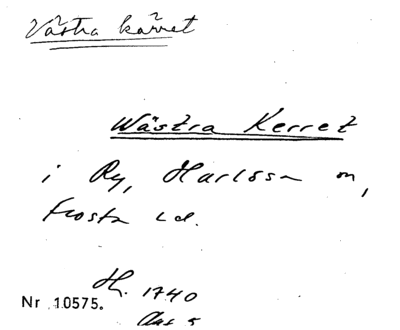 Västra kärret
Wästra Kerret
i Ry, Harlösa sn,
Frosta hd.
H. 1740
Nr 10575.